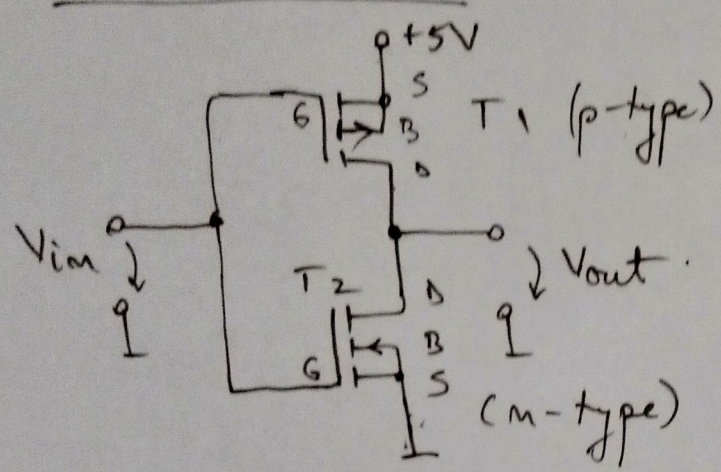 +5V
S
G
B
T1 (p-type)
D
Vin
Vout.
T2
D
B
G
S
(n-type)